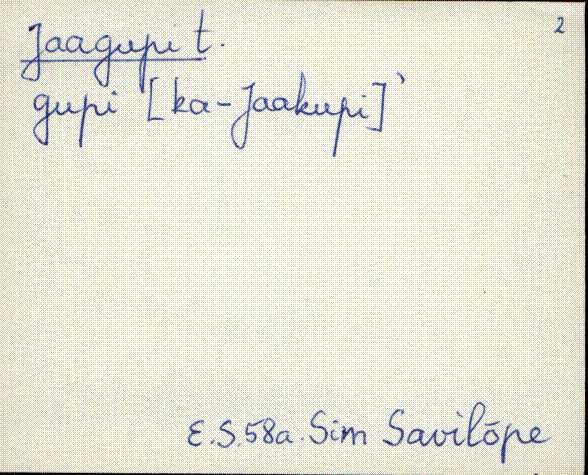 2
Jaagupi t.
gupi [ka-Jaakupi]`
E.S.58a. Sim Savilõpe